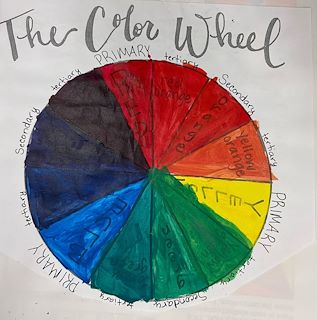 The Color Wheel
PRIMARY
tertiary
Secondary
tertiary
PRIMARY
tertiary
Secondary
tertiary
PRIMARY
tertiary
Secondary
tertiary
RED
red
orange
orange
yellow
orange
YELLOW
green
BLUE